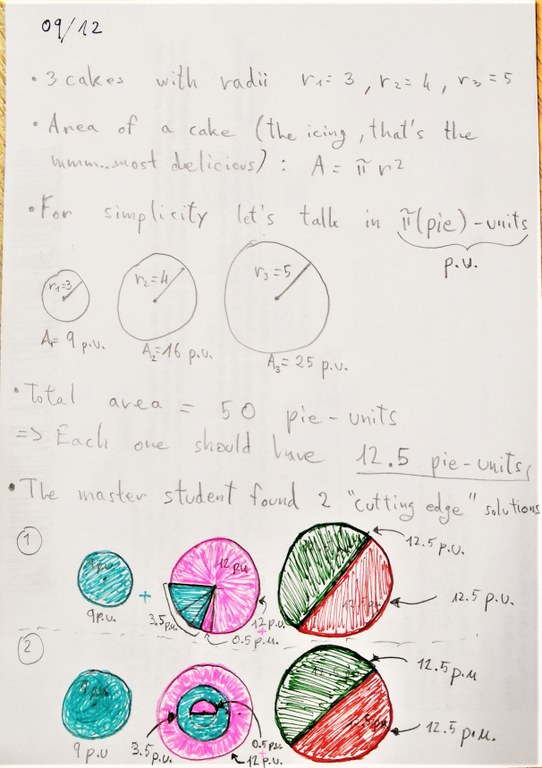 09/12
• 3 cakes with radii r₁=3, r₂=4, r₃=5
• Area of a cake (the icing, that's the
mmm...most delicious): A = π r²
• For simplicity let's talk in π(pie)-units
p.u.
r₁=3
r₂=4
r₃=5
A₁= 9 p.u.
A₂=16 p.u.
A₃= 25 p.u.
• Total area = 50 pie-units
=> Each one should have 12.5 pie-units,
• The master student found 2 "cutting edge" solutions
1
12 p.u.
12.5 p.u.
9p.u.
+
3.5p.u.
12 p.u.
0.5 p.u.
12.5 p.u.
2
12.5 p.u
9 p.u
3.5p.u.
0.5p.u.
12p.u.
12.5 p.u.